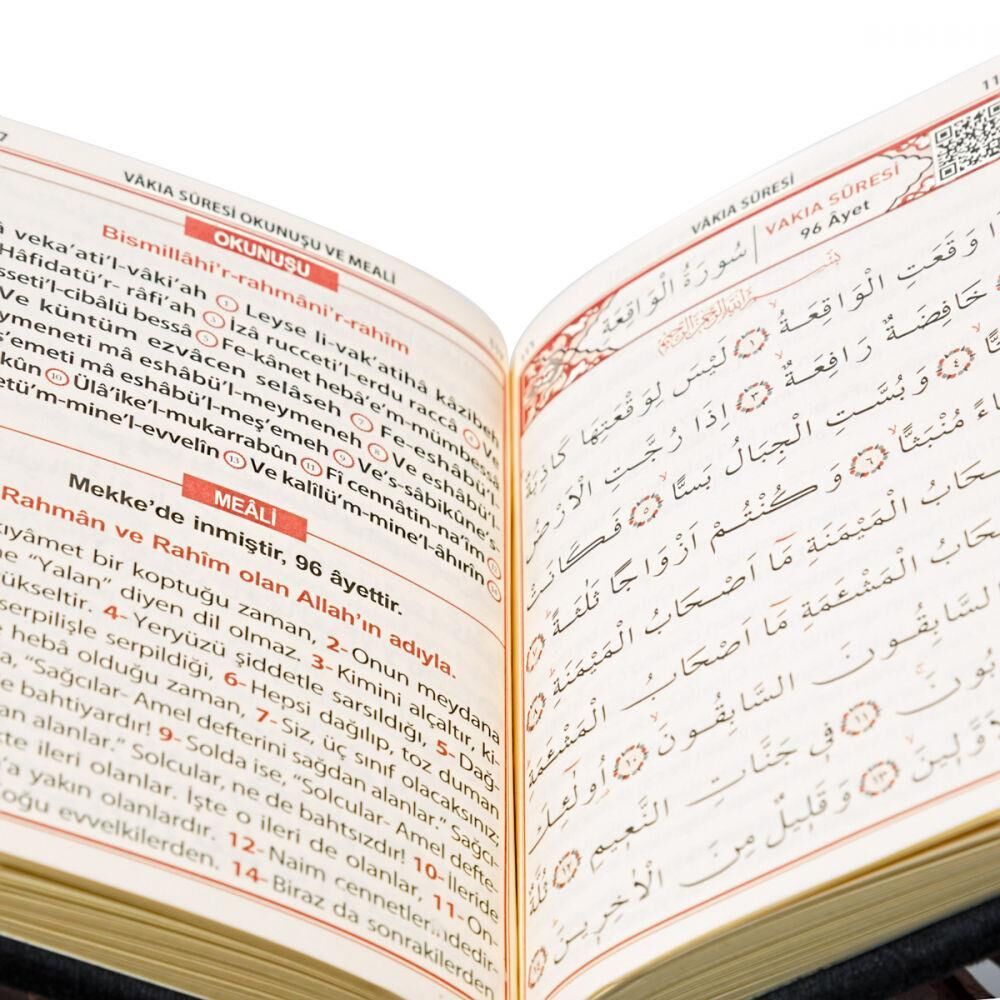 VÂKIA SÛRESİ OKUNUŞU VE MEALİ
OKUNUŞU
Bismillâhi'r-rahmâni'r-rahîm
veka'ati'l-vâki'ah ① Leyse li-vak'atihâ kâzibeh
Hâfidatü'r- râfi'ah ③ İzâ rucceti'l-erdu raccâ ④ Ve
sseti'l-cibâlü bessâ ⑤ Fe-kânet hebâ'e'm-mümbessâ
Ve küntüm ezvâcen selâseh ⑦ Fe-eshâbü'l-
ymeneti mâ eshâbü'l-meymeneh ⑧ Ve eshâbü'l-
ş'emeti mâ eshâbü'l-meş'emeh ⑨ Ve's-sâbikûne's-
kûn ⑩ Ülâ'ike'l-mukarrabûn ⑪ Fî cennâtin-na'îm ⑫
etü'm-mine'l-evvelîn ⑬ Ve kalîlü'm-mine'l-âhırîn ⑭
MEÂLİ
Mekke'de inmiştir, 96 âyettir.
Rahmân ve Rahîm olan Allah'ın adıyla.
kıyâmet bir koptuğu zaman, 2- Onun meydana
ne "Yalan" diyen dil olmaz. 3- Kimini alçaltır, ki-
yükseltir. 4- Yeryüzü şiddetle sarsıldığı, 5- Dağ-
serpilişle serpildiği, 6- Hepsi dağılıp, toz duman
heba olduğu zaman, 7- Siz, üç sınıf olacaksınız;
a, "Sağcılar- Amel defterini sağdan alanlar." Sağcı-
e bahtiyardır! 9- Solda ise, "Solcular- Amel defte-
an alanlar." Solcular, ne de bahtsızdır! 10- İleride
te ileri olanlar. İşte o ileri de olanlar, 11- On-
'a yakın olanlardır. 12- Naim cennetlerindedir-
oğu evvelkilerden. 14- Biraz da sonrakilerden
11
VÂKIA SÛRESİ
سُورَةُ الْوَاقِعَةِ
VAKIA SÛRESİ
96 Âyet
وَقَعَتِ الْوَاقِعَةُ ﴿١﴾ لَيْسَ لِوَقْعَتِهَا كَاذِبَةٌ
خَافِضَةٌ رَافِعَةٌ ﴿٣﴾ اِذَا رُجَّتِ الْاَرْضُ
﴿٤﴾ وَبُسَّتِ الْجِبَالُ بَسًّا ﴿٥﴾ فَكَانَتْ
مُنْبَثًّا ﴿٦﴾ وَكُنْتُمْ اَزْوَاجًا ثَلٰثَةً ﴿٧﴾
الْمَيْمَنَةِ مَٓا اَصْحَابُ الْمَيْمَنَةِ ﴿٨﴾
الْمَشْـَٔمَةِ مَٓا اَصْحَابُ الْمَشْـَٔمَةِ
السَّابِقُونَ السَّابِقُونَ ﴿١٠﴾ اُولٰٓئِكَ
﴿١١﴾ فِي جَنَّاتِ النَّعِيمِ ﴿١٢﴾ ثُلَّةٌ
﴿١٣﴾ وَقَلِيلٌ مِنَ الْاٰخِرِينَ ﴿١٤﴾